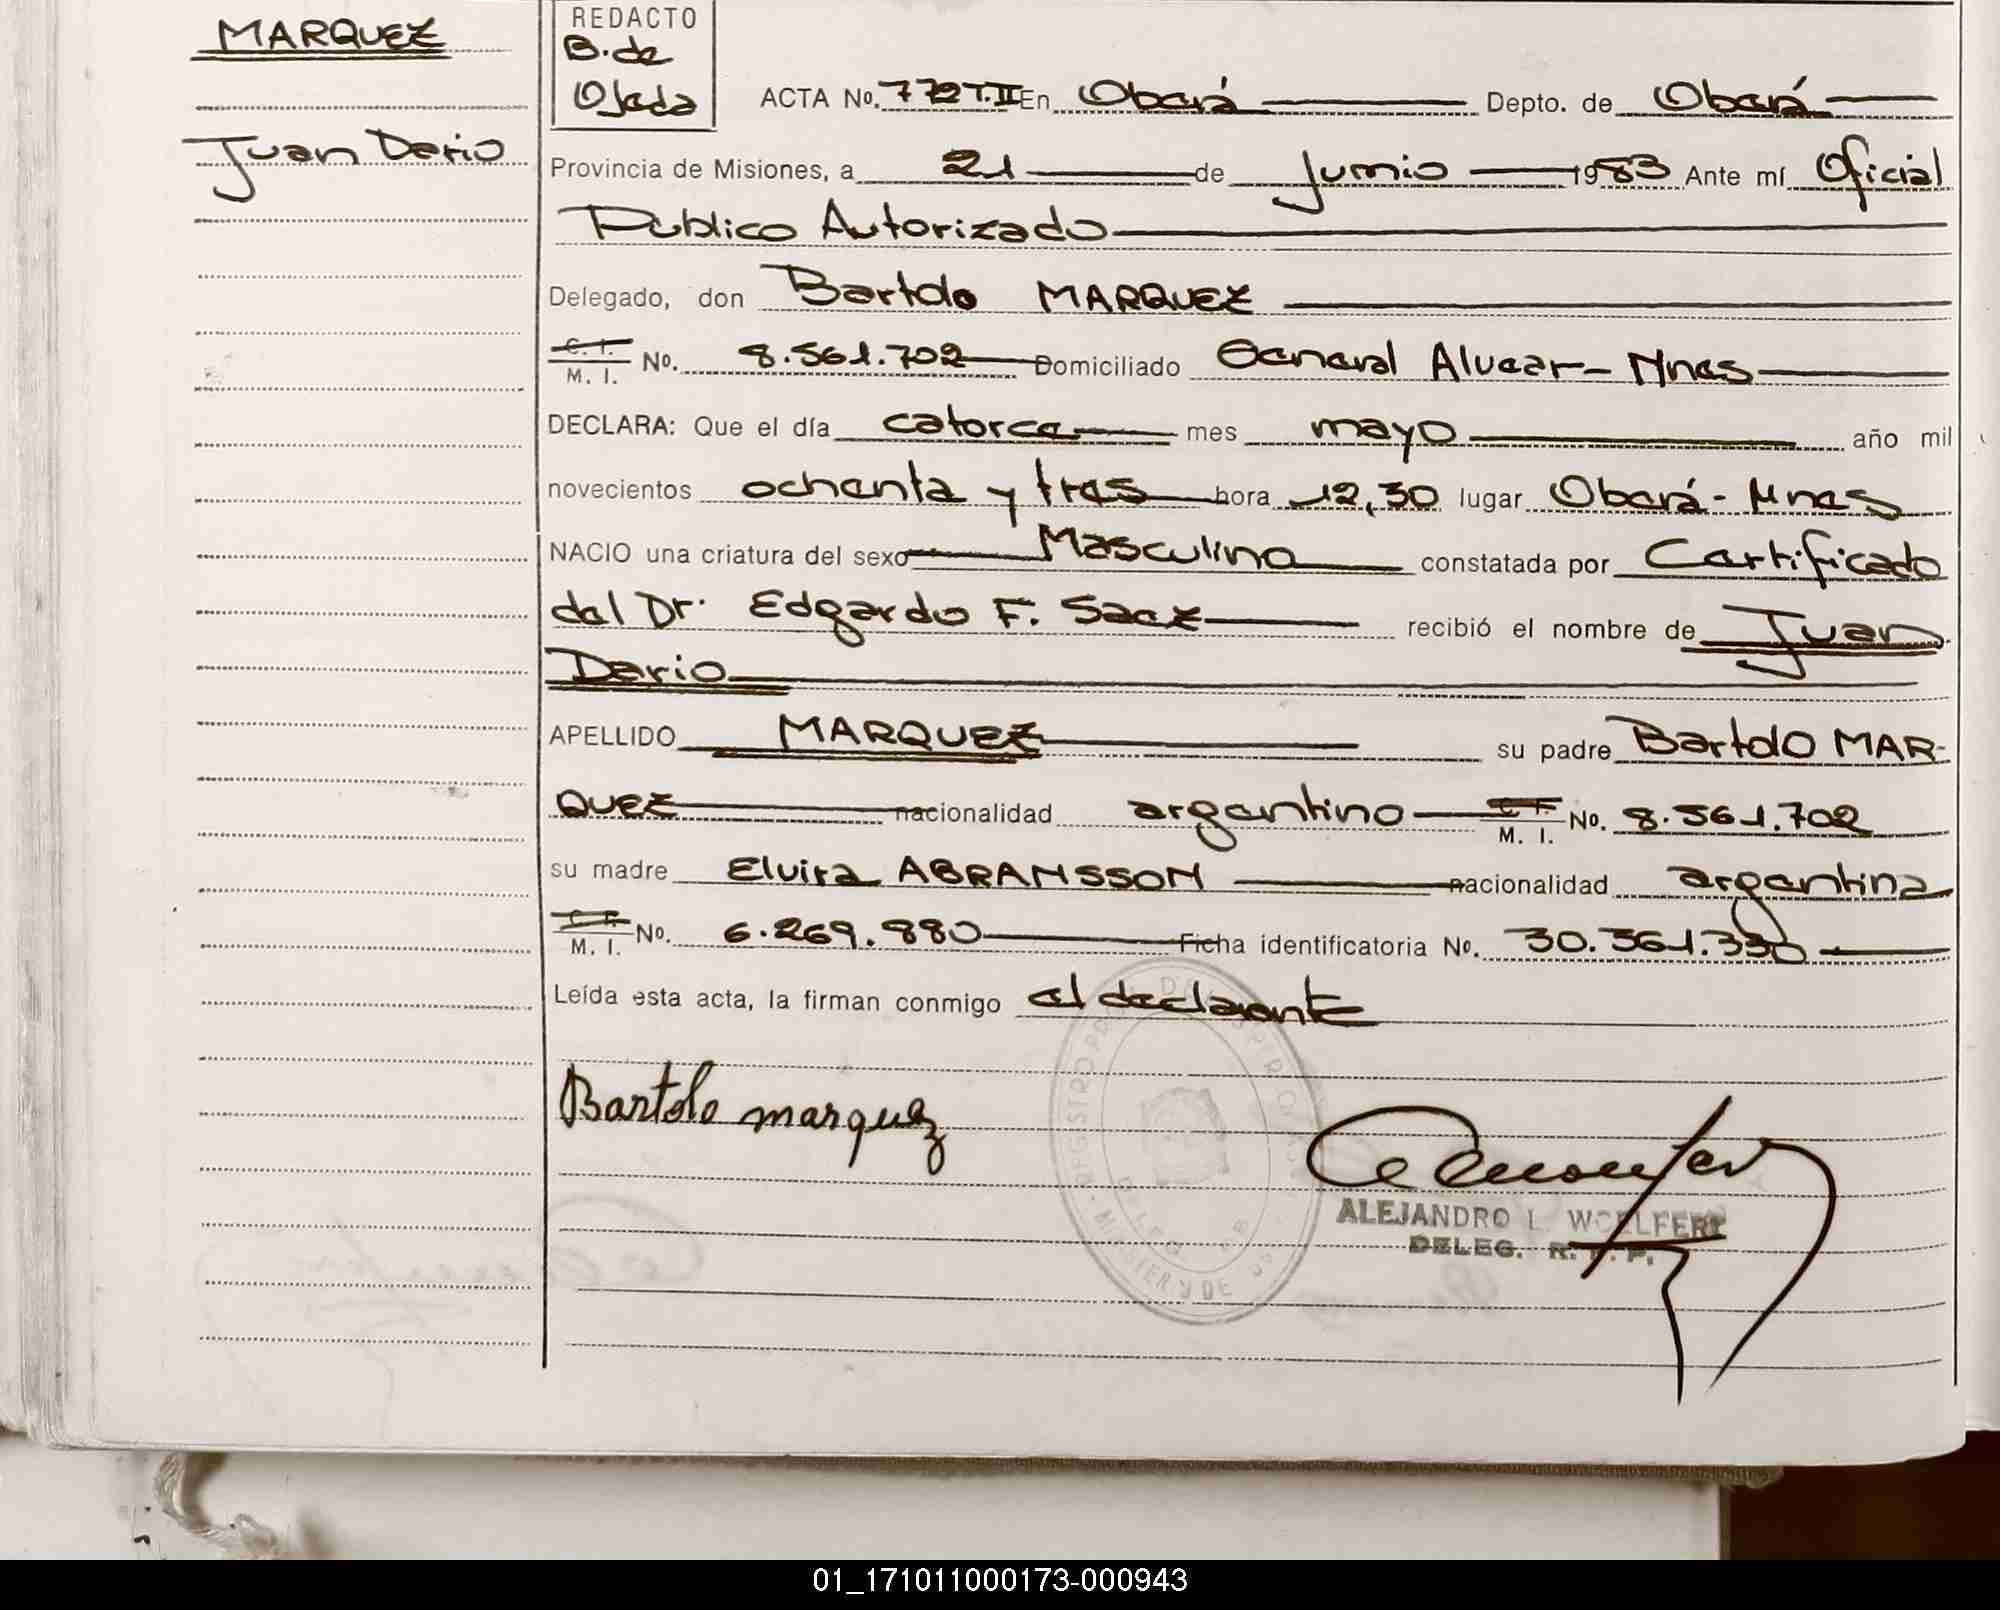 MARQUEZ
Juan Dario
REDACTO
B. de
Ojeda
ACTA No. 772 T.II En Oberá Depto. de Oberá
Provincia de Misiones, a 21 de Junio 1983 Ante mí Oficial
Publico Autorizado
Delegado, don Bartolo MARQUEZ
C. I.
M. I. No. 8.561.702 Domiciliado General Alvear - Mnes
DECLARA: Que el día catorce mes mayo año mil
novecientos ochenta y tres hora 12,30 lugar Oberá - Mnes
NACIO una criatura del sexo Masculino constatada por Certificado
del Dr. Edgardo F. Saez recibió el nombre de Juan
Dario
APELLIDO MARQUEZ su padre Bartolo MAR-
QUEZ nacionalidad argentino C. I. M. I. No. 8.561.702
su madre Elvira ABRAMSSON nacionalidad argentina
C. I.
M. I. No. 6.269.880 Ficha identificatoria No. 30.361.330
Leída esta acta, la firman conmigo el declarante
Bartolo marquez
ALEJANDRO L. WOELFERT
DELEG. R. P. P.
01_171011000173-000943